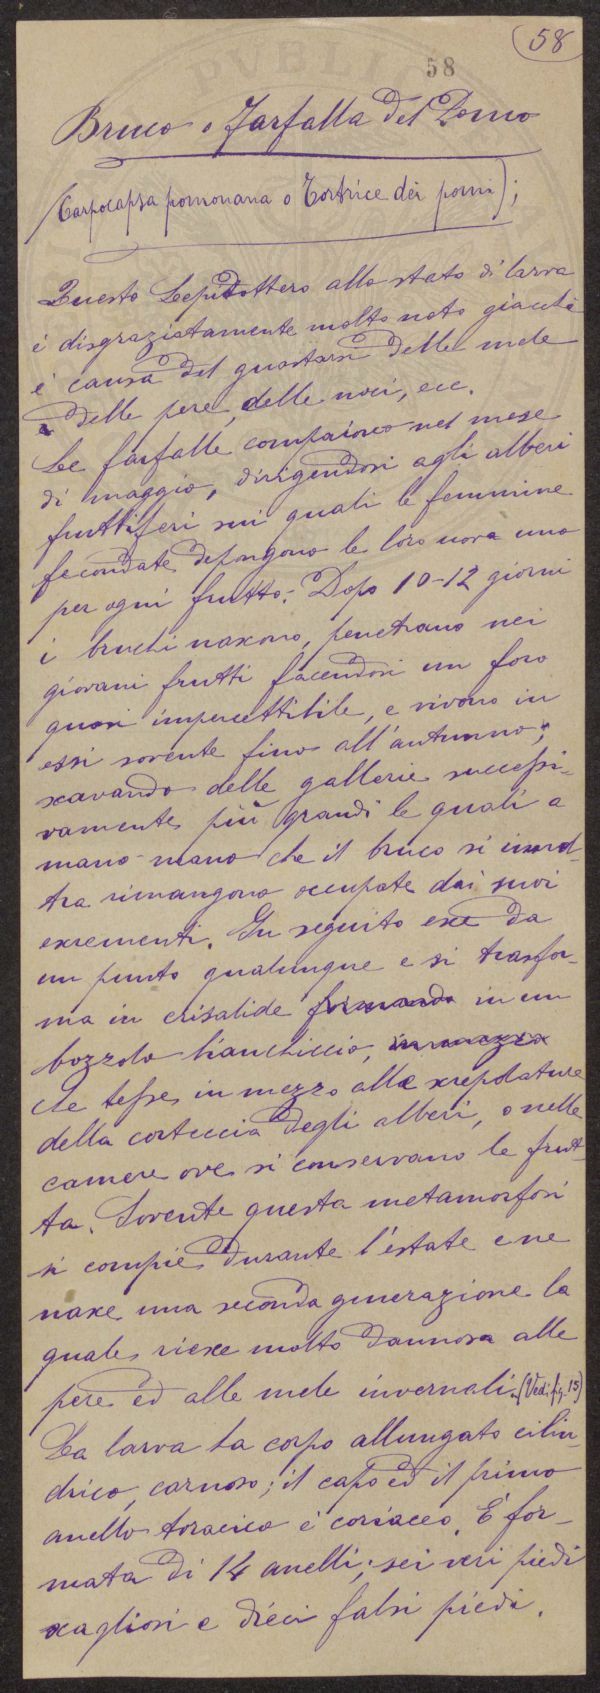 58
58
Bruco o Farfalla del Pomo
(Carpocapsa pomonana o Tortrice dei pomi);
Questo Lepidottero allo stato di larva
è disgraziatamente molto noto giacchè
è causa del guastarsi delle mele
delle pere, delle noci, ecc.
Le farfalle compaiono nel mese
di maggio, dirigendosi agli alberi
fruttiferi sui quali le femmine
fecondate depongono le loro uova uno
per ogni frutto. Dopo 10-12 giorni
i bruchi nascono, penetrano nei
giovani frutti facendosi un foro
quasi impercettibile, e vivono in
essi sovente fino all'autunno;
scavando delle gallerie successi-
vamente più grandi le quali a
mano mano che il bruco si inol-
tra rimangono occupate dai suoi
escrementi. In seguito esce da
un punto qualunque e si trasfor-
ma in crisalide formando in un
bozzolo bianchiccio, in mezzo
che tesse in mezzo alle screpolature
della corteccia degli alberi, o nelle
camere ove si conservano le frut-
ta. Sovente questa metamorfosi
si compie durante l'estate e ne
nasce una seconda generazione la
quale riesce molto dannosa alle
pere ed alle mele invernali. (Vedi fig. 15)
La larva ha corpo allungato cilin-
drico, carnoso; il capo ed il primo
anello toracico è coriaceo. È for-
mata di 14 anelli; sei veri piedi
scagliosi e dieci falsi piedi.